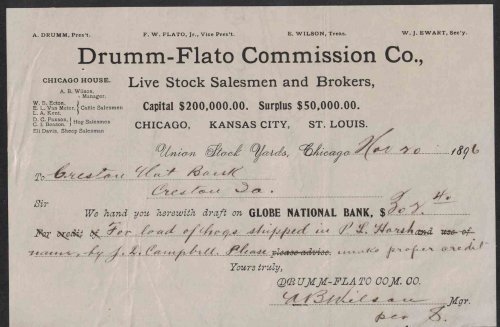 A. DRUMM, Pres't. F. W. FLATO, Jr., Vice Pres't. E. WILSON, Treas. W. J. EWART, Sec'y.
Drumm-Flato Commission Co.,
CHICAGO HOUSE.
A. B. Wilson,
Manager.
W. B. Ecton,
E. L. Van Meter,
L. A. Kent, Cattle Salesmen
D. C. Paxson,
C. I. Benson. Hog Salesmen
Eli Davis, Sheep Salesman
Live Stock Salesmen and Brokers,
Capital $200,000.00. Surplus $50,000.00.
CHICAGO, KANSAS CITY, ST. LOUIS.
Union Stock Yards, Chicago Nov 20 1896
To Creston Nat Bank
Creston Ia.
Sir
We hand you herewith draft on GLOBE NATIONAL BANK, $ 302.40
For credit of For load of hogs shipped in P. L. Harsh and use of
name, by J. L. Campbell. Please please advise. make proper credit
Yours truly,
DRUMM-FLATO COM. CO.
A B Wilson Mgr.
per